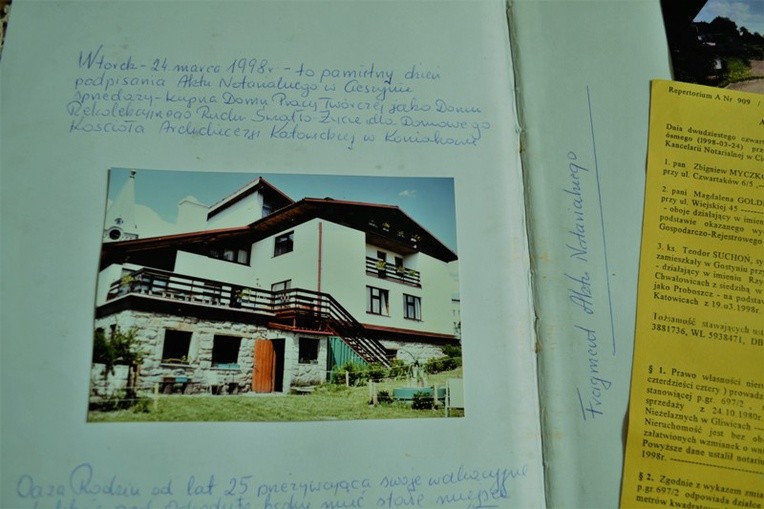 Wtorek - 24 marca 1998r - to pamiętny dzień
podpisania Aktu Notarialnego w Cieszynie
sprzedaży-kupna Domu Pracy Twórczej jako Domu
Rekolekcyjnego Ruchu Światło Życie dla Domowego
Kościoła Archidiecezji Katowickiej w Koniakowie
Oaza Rodzin od lat 25 przeżywająca swoje wakacyjne
Fragment Aktu Notarialnego
Repertorium A Nr 909 /
Dnia dwudziestego czwar
ósmego (1998-03-24) prz
Kancelarii Notarialnej w Ci
1. pan Zbigniew MYCZKO
przy ul. Czwartaków 6/5
2. pani Magdalena GOLD
przy ul. Wiejskiej 45
- oboje działający w imien
podstawie okazanego wy
Gospodarczo-Rejestrowego
3. ks. Teodor SUCHOŃ, sy
zamieszkały w Gostyniu przy
- działający w imieniu Rzy
Chwałowicach z siedzibą w
jako Proboszcz - na podstaw
Katowicach z 19.03.1998r.
Tożsamość stawających ust
3881736, WL 5938471, DB
§ 1. Prawo własności nier
czterdzieści cztery ) prowadz
stanowiącej p.gr. 697/2
sprzedaży z 24.10.1980r.
Nieżelaznych w Gliwicach
Nieruchomość jest bez ob
załatwionych wzmianek o wn
Powyższe dane ustalił notariu
1998r.
§ 2. Zgodnie z wykazem zmia
p.gr.697/2 odpowiada działce
metrów kwadrato